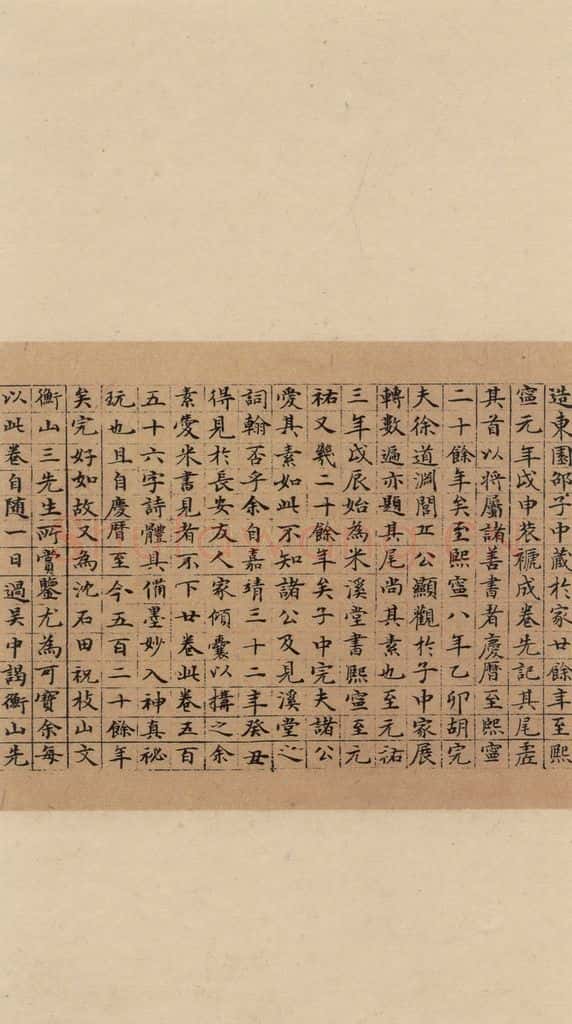 造東園邵子中藏於家廿餘年至熙
寧元年戊申裝褫成卷先記其尾虗
其首以將屬諸善書者慶曆至熙寧
二十餘年矣至熙寧八年乙卯胡完
夫徐道淵閭丘公顯觀於子中家展
轉數遍亦題其尾尚其素也至元祐
三年戊辰始為米溪堂書熙寧至元
祐又幾二十餘年矣子中完夫諸公
愛其素如此不知諸公及見溪堂之
詞翰否乎余自嘉靖三十二年癸丑
得見於長安友人家傾囊以搆之余
素愛米書見者不下廿卷此卷五百
五十六字詩體具備墨妙入神真祕
玩也且自慶曆至今五百二十餘年
矣完好如故又為沈石田祝枝山文
衡山三先生所賞鑒尤為可寶余每
以此卷自隨一日過吳中謁衡山先